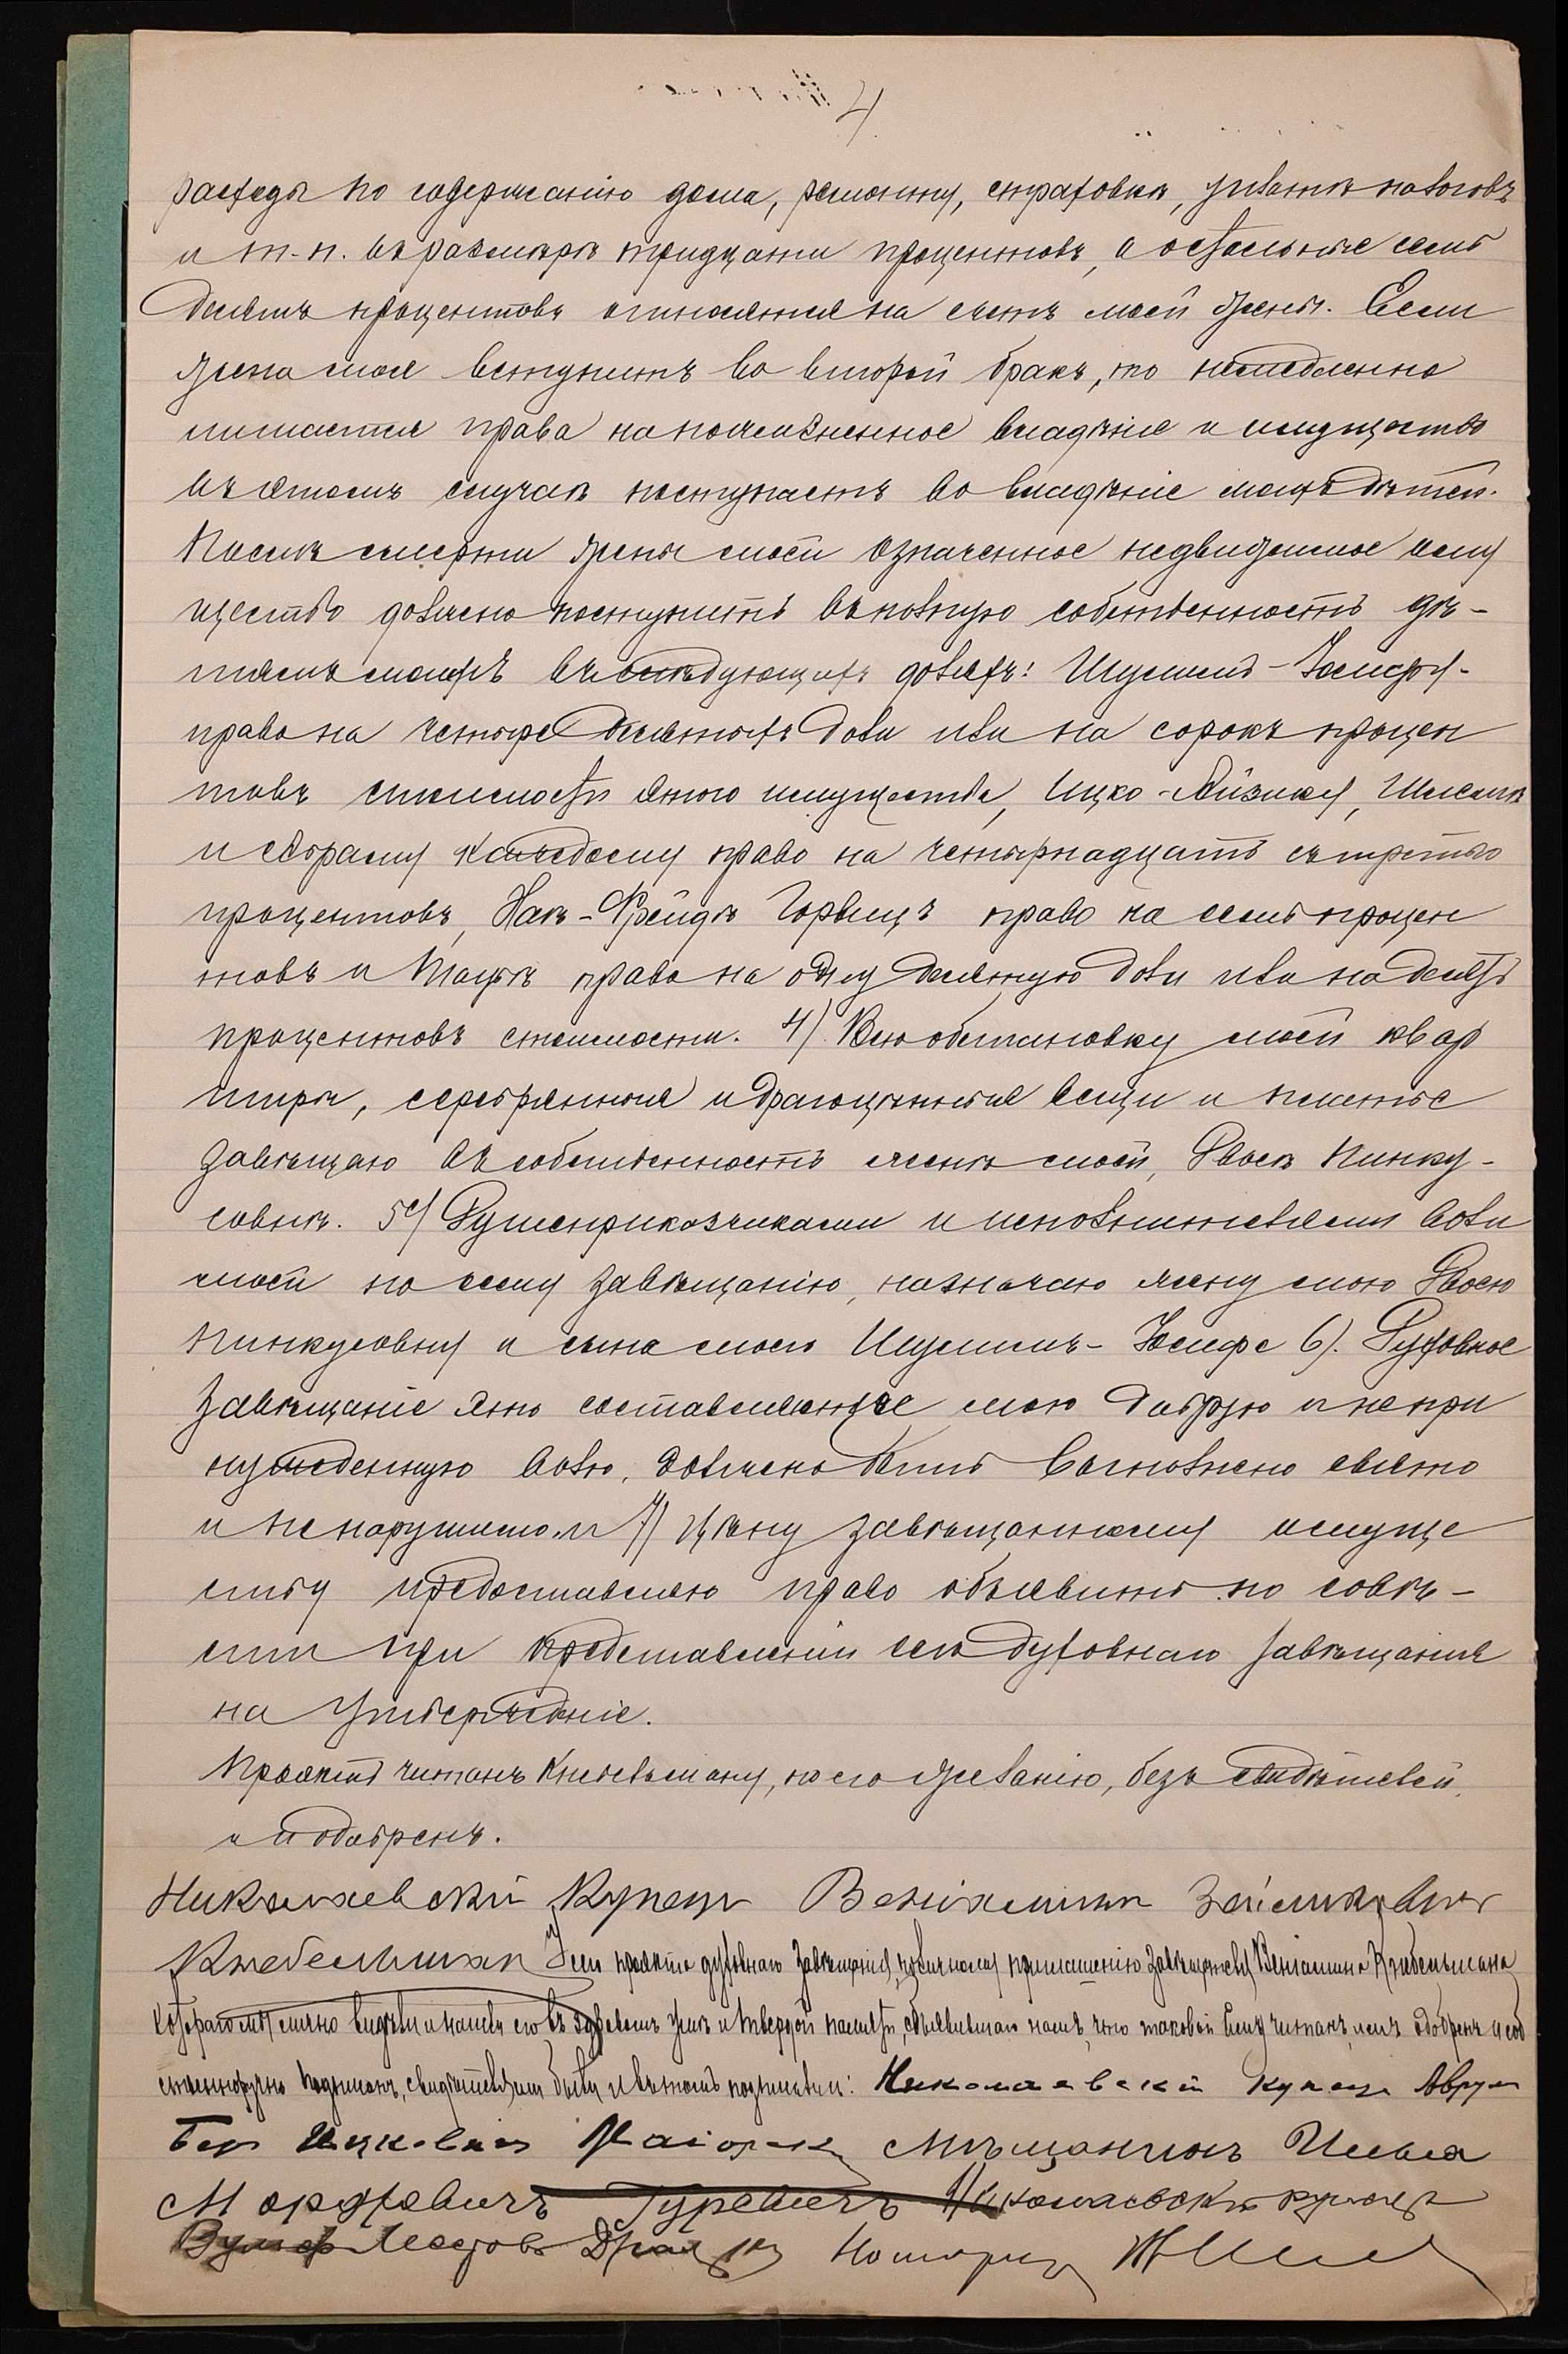 4
расходы по содержанію дома, ремонту, страховкѣ, уплатѣ налоговъ
и т.п. въ размѣрѣ тридцати процентовъ, а остальные семь
десятъ процентовъ относятся на счетъ моей жены. Если
жена моя вступитъ во второй бракъ, то немедленно
лишается права на пожизненное владѣніе и имущество
въ этомъ случаѣ поступаетъ во владѣніе моихъ дѣтей.
Послѣ смерти жены моей означенное недвижимое иму
щество должно поступить въ полную собственность дѣ-
тямъ моимъ въ слѣдующихъ доляхъ: Шулимъ-Іосифу-
право на четыре десятыхъ доли или на сорокъ процен
товъ стоимости этого имущества, Ицко-Айзику, Шлемѣ
и Абраму каждому право на четырнадцать съ третью
процентовъ, Хаѣ-Фрейдѣ Горвицъ право на семь процен
товъ и Таубѣ право на одну десятую доли или на десять
процентовъ стоимости. 4) Всю обстановку моей квар
тиры, серебрянныя и драгоцѣнныя вещи и платье
завѣщаю въ собственность женѣ моей, Двосѣ Пинку-
совнѣ. 5) Душеприказчиками и исполнителями воли
моей по сему завѣщанію, назначаю жену мою Двосю
Пинкусовну и сына моего Шулимъ-Іосифа 6). Духовное
завѣщаніе это составляющее мою добрую и непри
нужденную волю, должно быть выполнено свято
и ненарушимо и 7) Цѣну завѣщанному имуще
ству предоставляю право объявить по совѣ-
сти при представленіи сего духовнаго завѣщанія
на утвержденіе.
Проектъ читанъ Кнебельману, по его желанію, безъ свидѣтелей,
и одобренъ.
Николаевскій Купецъ Веніаминъ Зеймановичъ
Кнебельманъ У сего проекта духовнаго завѣщанія, по личному приглашенію завѣщателя Веніамина Кнебельмана
котораго мы лично видѣли и нашли его въ здравомъ умѣ и твердой памяти, объявившаго намъ, что таковой ему читанъ, имъ одобренъ и соб
ственноручно подписанъ, свидѣтелями были и въ томъ подписали: Николаевскій купецъ Аврум
Бер Ицковичъ мѣщанинъ
Мордковичъ Гуревичъ Николаевскій купецъ
Вульф Нотаріусъ